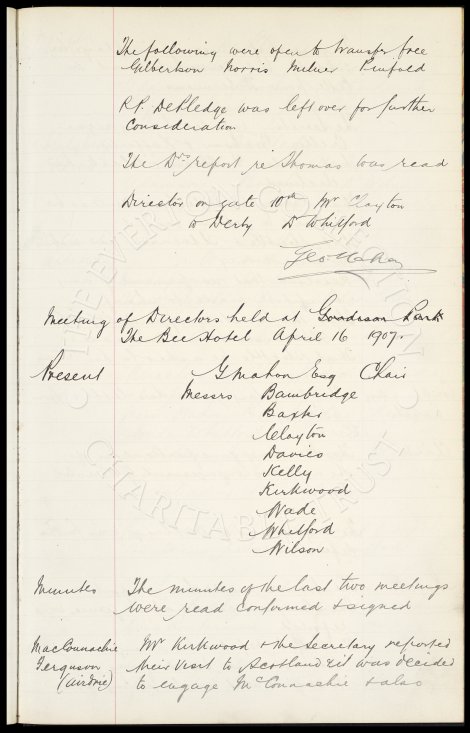 The following were open to transfer free
Gilbertson Norris Milner Pinfold
P.P. DePledge was left over for further
Consideration
The Drs report re Thomas was read
Director on gate 10th Mr Clayton
to Derby Dr Whitford
Geo Mahon
Meeting of Directors held at Goodison Park
The Bee Hotel April 16 1907.
Present G Mahon Esq Chair
Messrs Bainbridge
Baxter
Clayton
Davies
Kelly
Kirkwood
Wade
Whitford
Wilson
Minutes The minutes of the last two meetings
were read confirmed & signed
MacConnachie Mr Kirkwood & the Secretary reported
Ferguson their visit to Scotland & it was decided
(Airdrie) to engage McConnachie & also
THE EVERTON COLLECTION
CHARITABLE TRUST